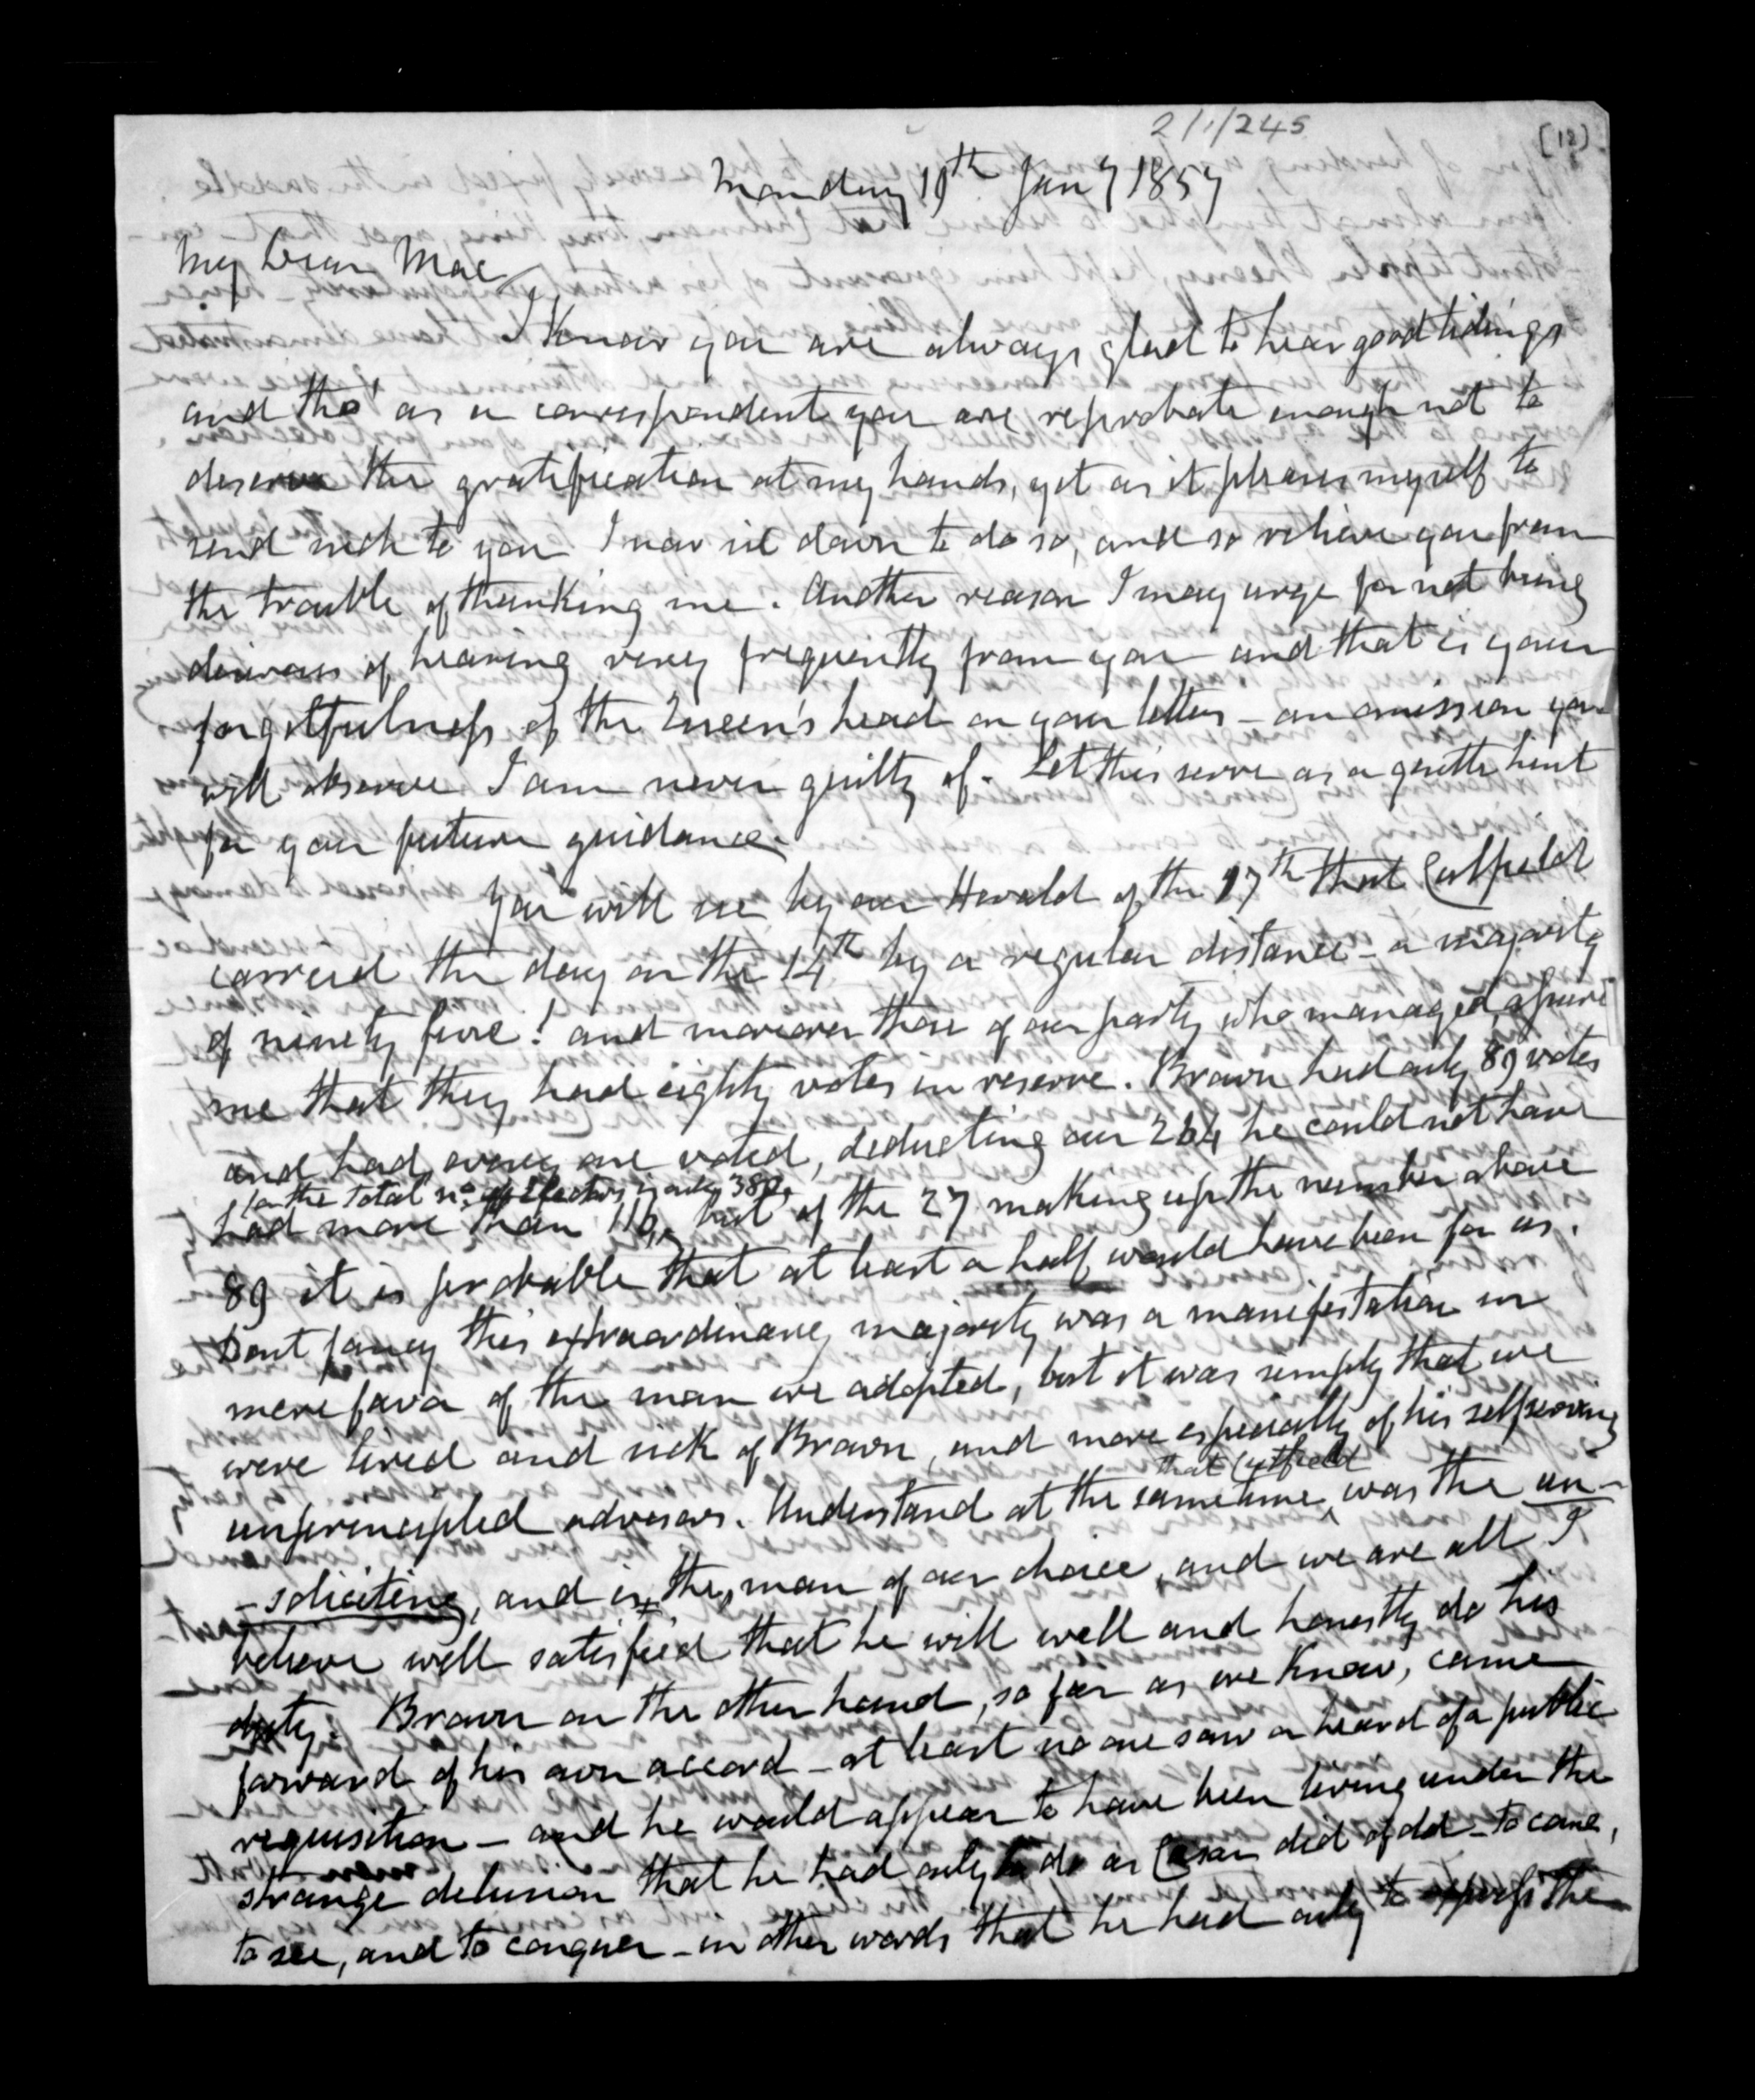 2/1/245
(12)
Monday 19th Jany 1857
My Dear Mac
I Know you are always glad to hear good tidings
and tho' as a correspondent you are reprobate enough not to
deserve the gratification at my hands, yet as it pleases myself to
send such to you I now sit down to do so, and so relieve you from
the trouble of thanking me. Another reason I may urge for not being
desirous of hearing very frequently from you and that is your
forgetfulness of the Queen's head on your letters - an omission you
will observe I am never guilty of. Let this serve as a gentle hint
for your future guidance.
You will see by our Herald of the 17th that Cutfield
carried the day on the 14th by a regular distance - a majority
of ninety five! and moreover those of our party who managed assure
me that they had eighty votes in reserve. Brown had only 89 votes
and had every one voted, deducting our 264 he could not have
for the total no. of Electors is only 380.
had more than 116, but of the 27 making up the number above
89 it is probable that at least a half would have been for us.
Dont fancy this extraordinary majority was a manifestation in
mere favor of the man we adopted, but it was simply that we
were tired and sick of Brown, and more especially of his selfserving
unprincipled advisers. Understand at the same time that Cutfield was the un-
-soliciting, and is the man of our choice, and we are all I
believe well satisfied that he will well and honestly do his
duty. Brown on the other hand, so far as we Know, came
forward of his own accord - at least no one saw or heard of a public
requisition - and he would appear to have been living under the
strange delusion that he had only to do as Cesar did of old - to come,
to see, and to conquer - in other words that he had only to oppress the